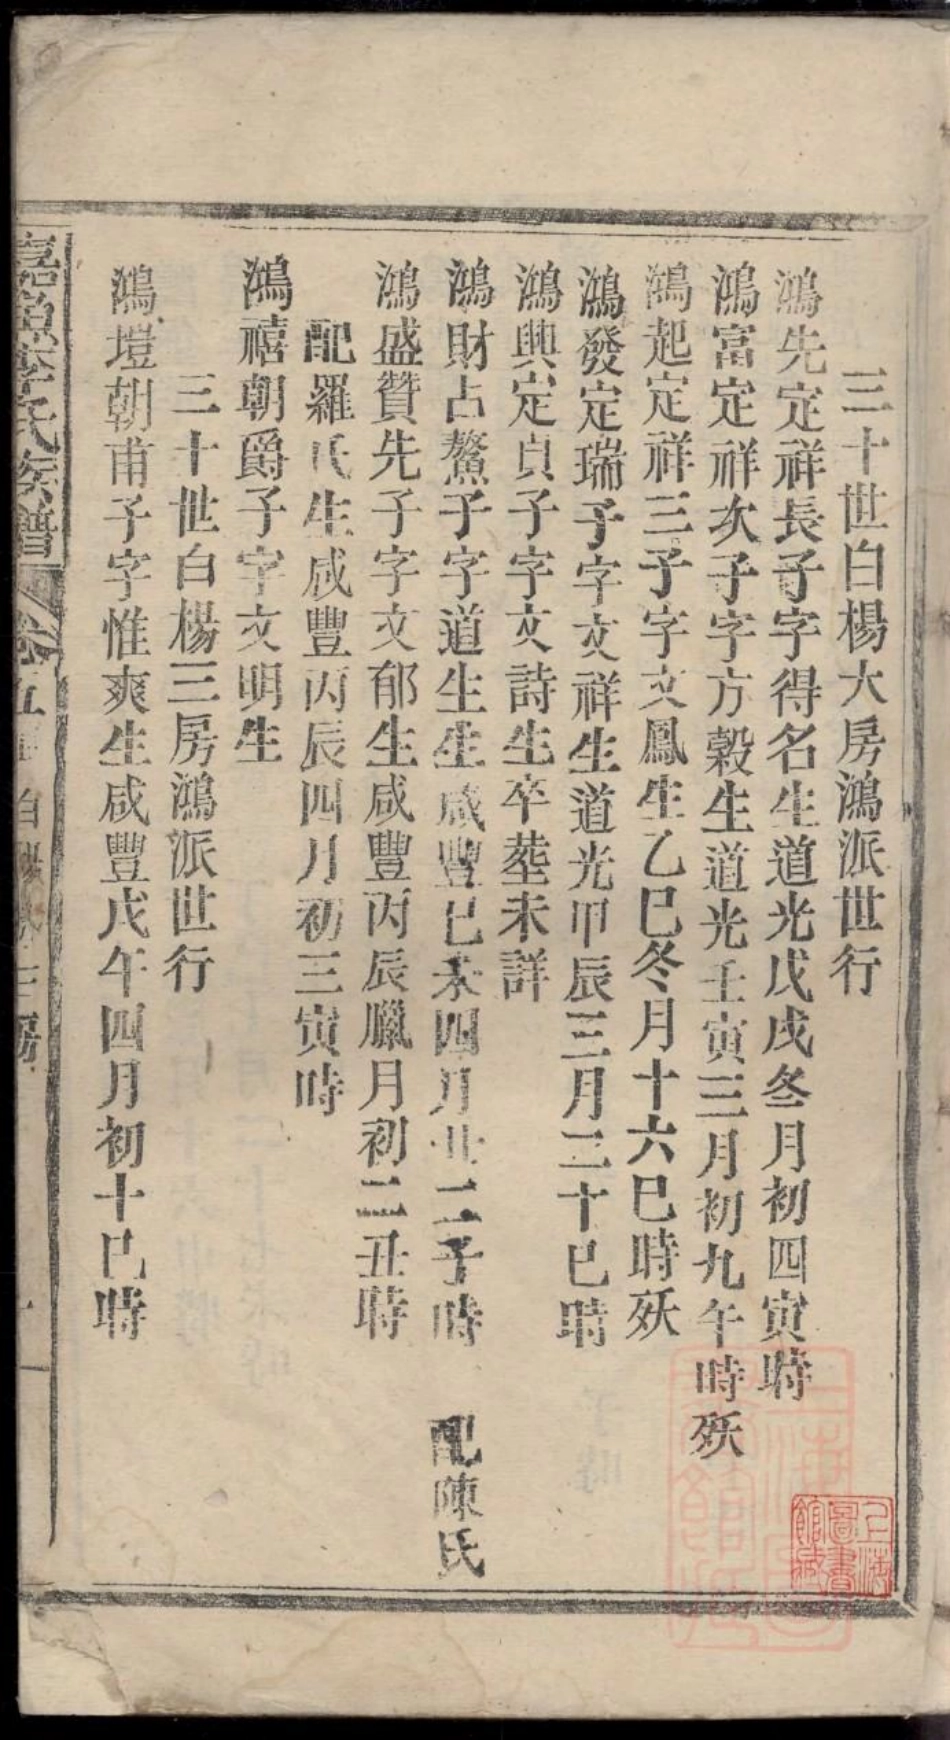 三十世白楊大房鴻派世行
鴻先定祥長子字得名生道光戊戌冬月初四寅時
鴻富定祥次子字方穀生道光壬寅三月初九午時殀
鴻起定祥三子字文鳳生乙巳冬月十六巳時殀
鴻發定瑞子字文祥生道光甲辰三月二十巳時
鴻興定貞子字文詩生卒塟未詳
鴻財占鰲子字道生生咸豐己未四月廿二子時 配陳氏
鴻盛贊先子字文郁生咸豐丙辰臘月初二丑時
配羅氏生咸豐丙辰四月初三寅時
鴻禧朝爵子字文明生
三十世白楊三房鴻派世行
鴻塏朝甫子字惟爽生咸豐戊午四月初十巳時
嘉魚李氏族譜 卷五 白楊 三房
上海圖書館藏